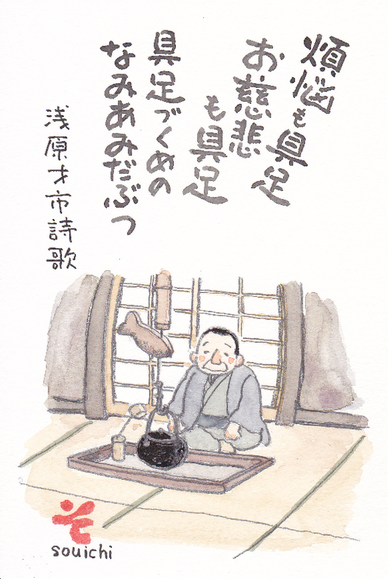 煩悩も具足
お慈悲
も具足
具足づくめの
なみあみだぶつ
浅原才市詩歌
souichi